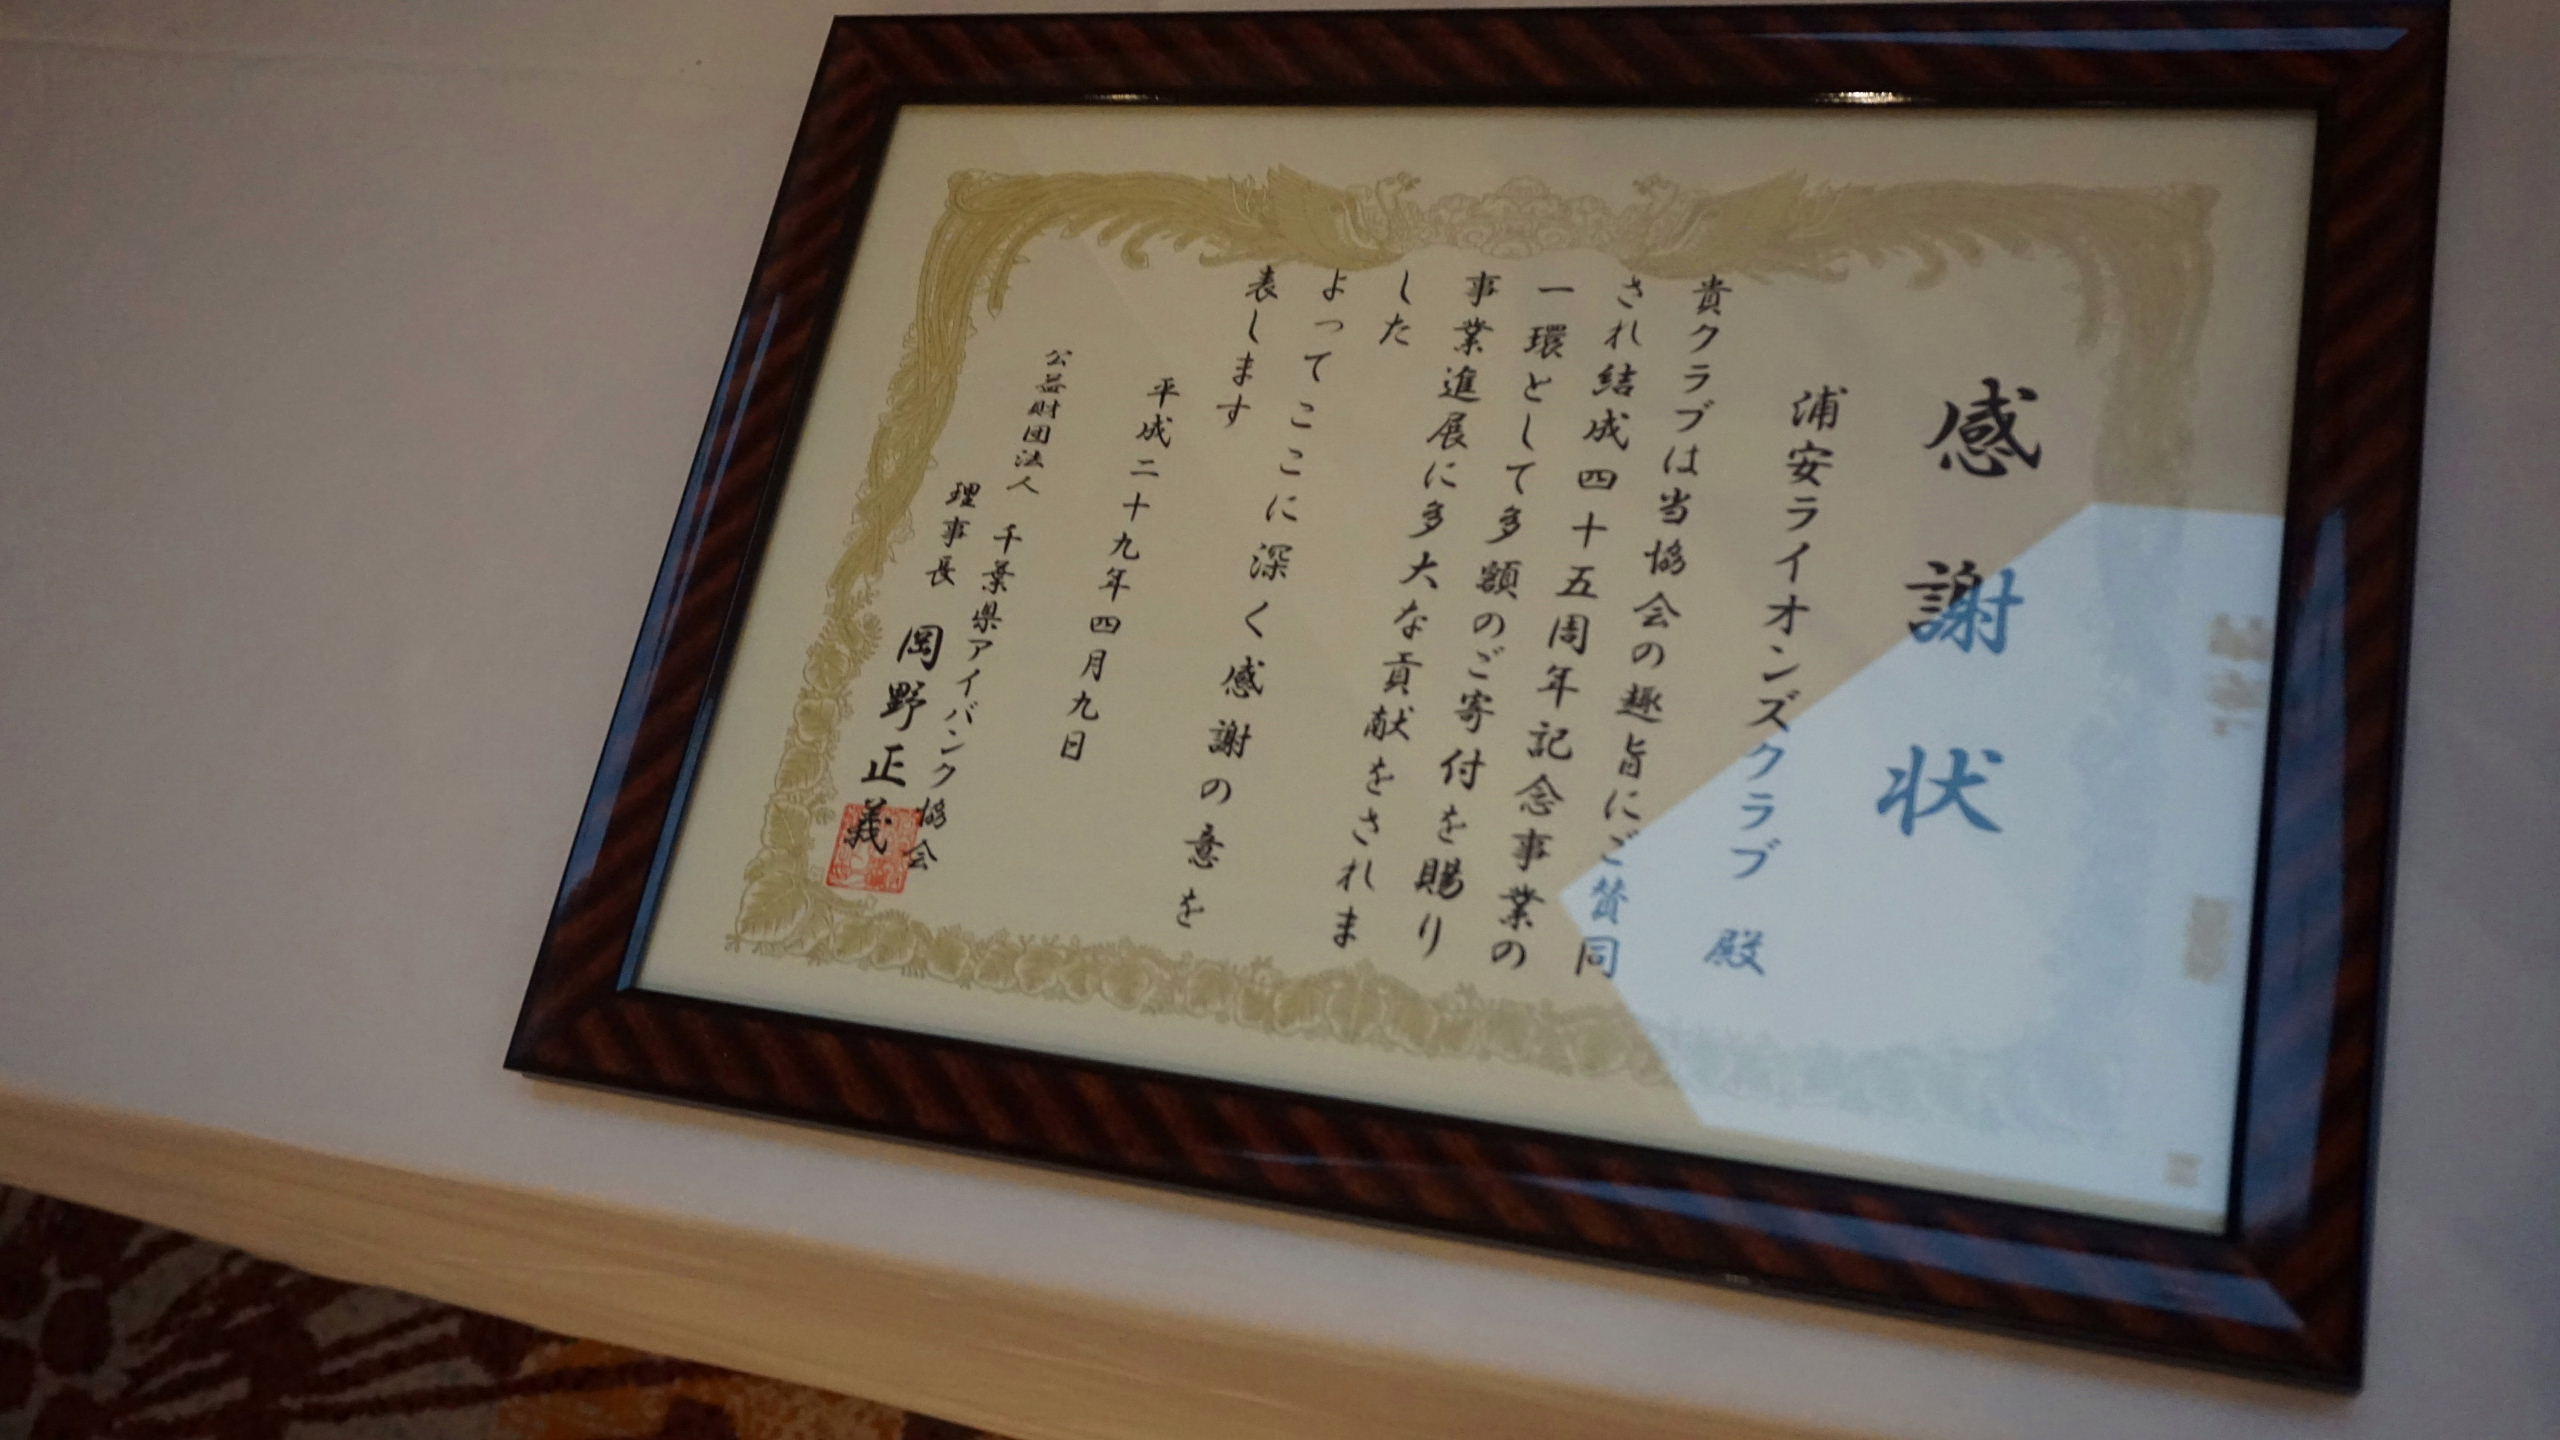 感謝状
浦安ライオンズクラブ 殿
貴クラブは当協会の趣旨にご賛同
され結成四十五周年記念事業の
一環として多額のご寄付を賜り
事業進展に多大な貢献をされま
した
よってここに深く感謝の意を
表します
平成二十九年四月九日
公益財団法人 千葉県アイバンク協会
理事長 岡野正義